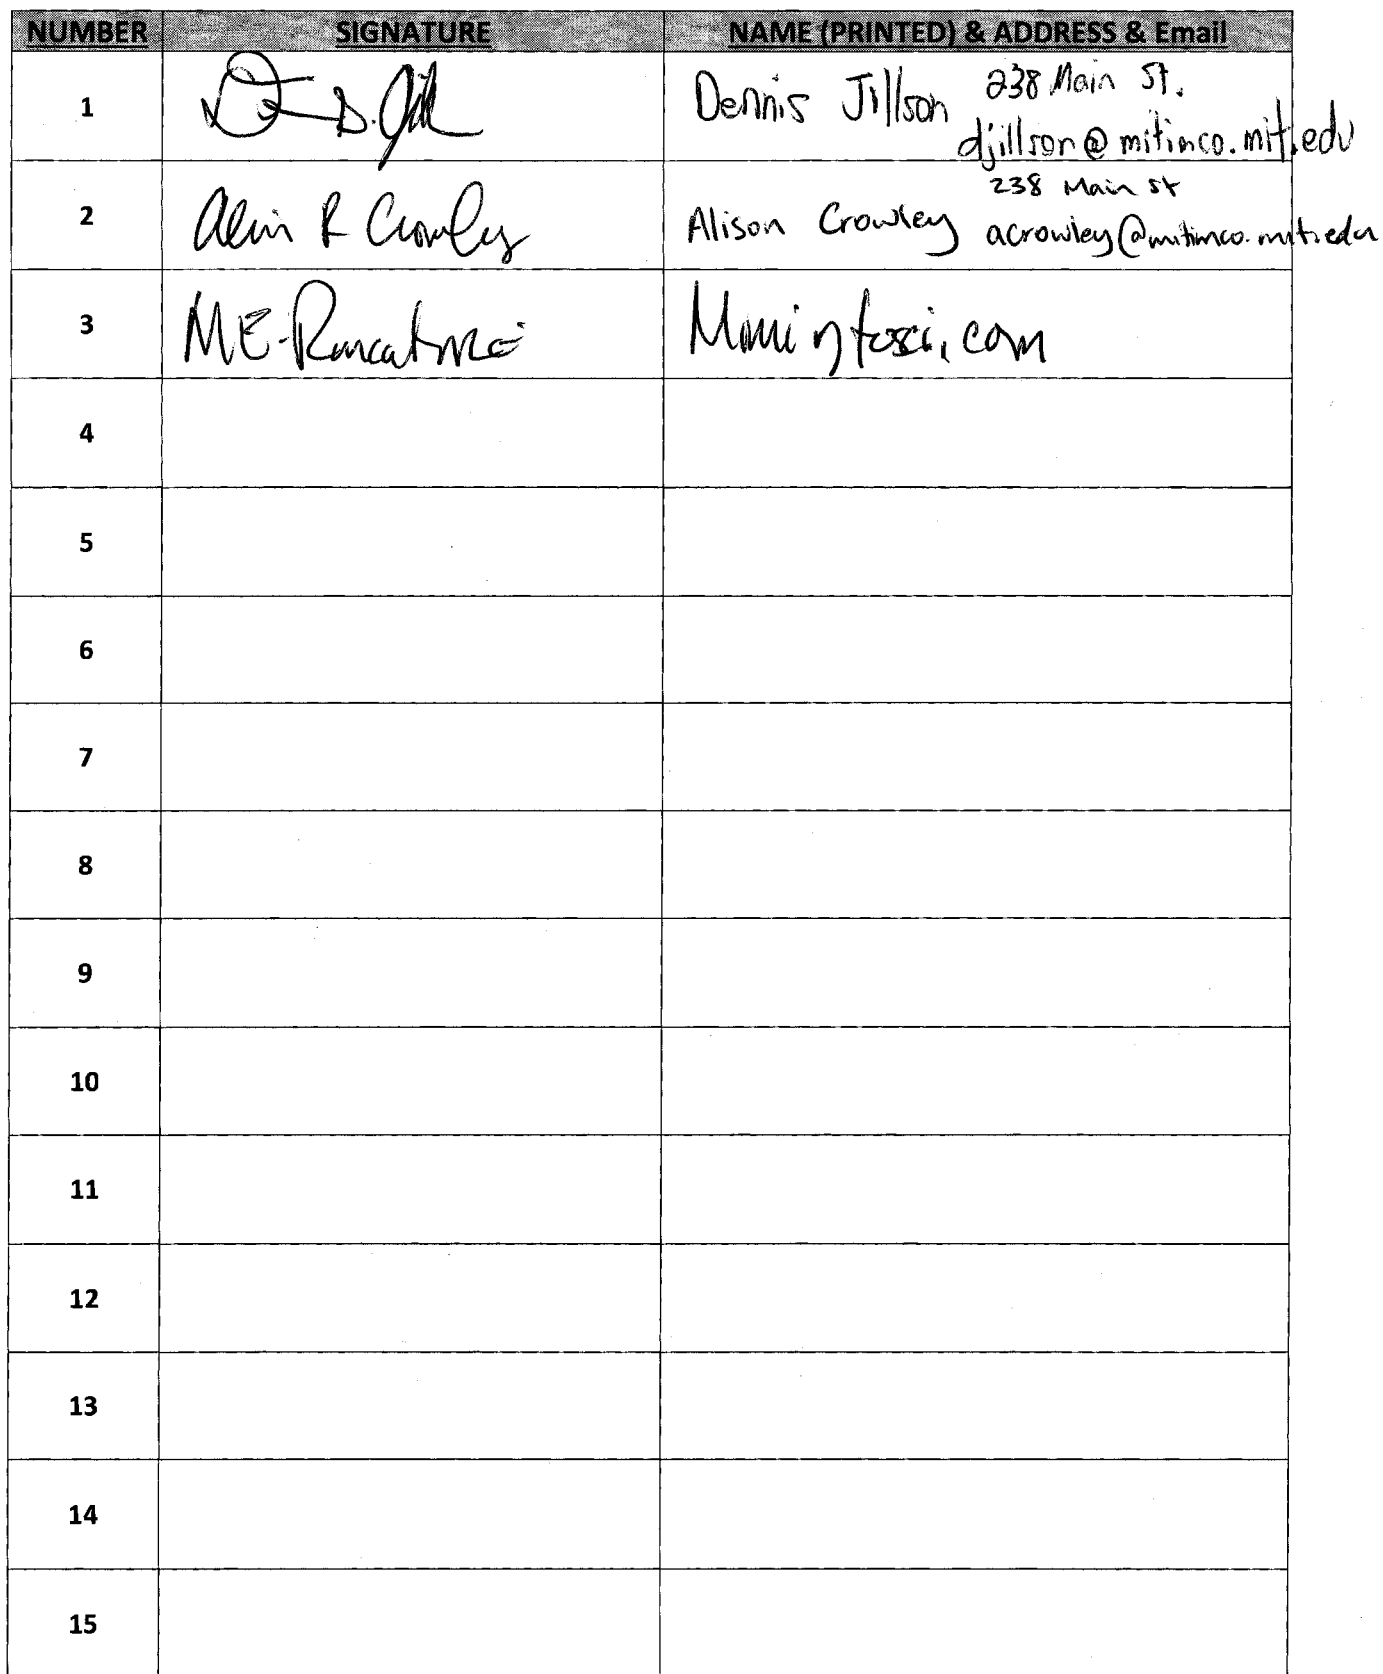 NUMBER SIGNATURE NAME (PRINTED) & ADDRESS & Email
1 D. Dennis Jillson 238 Main St.
djillson@mitimco.mit.edu
2 R Crowley Alison Crowley 238 Main St
acrowley@mitimco.mit.edu
3 ME-
4
5
6
7
8
9
10
11
12
13
14
15